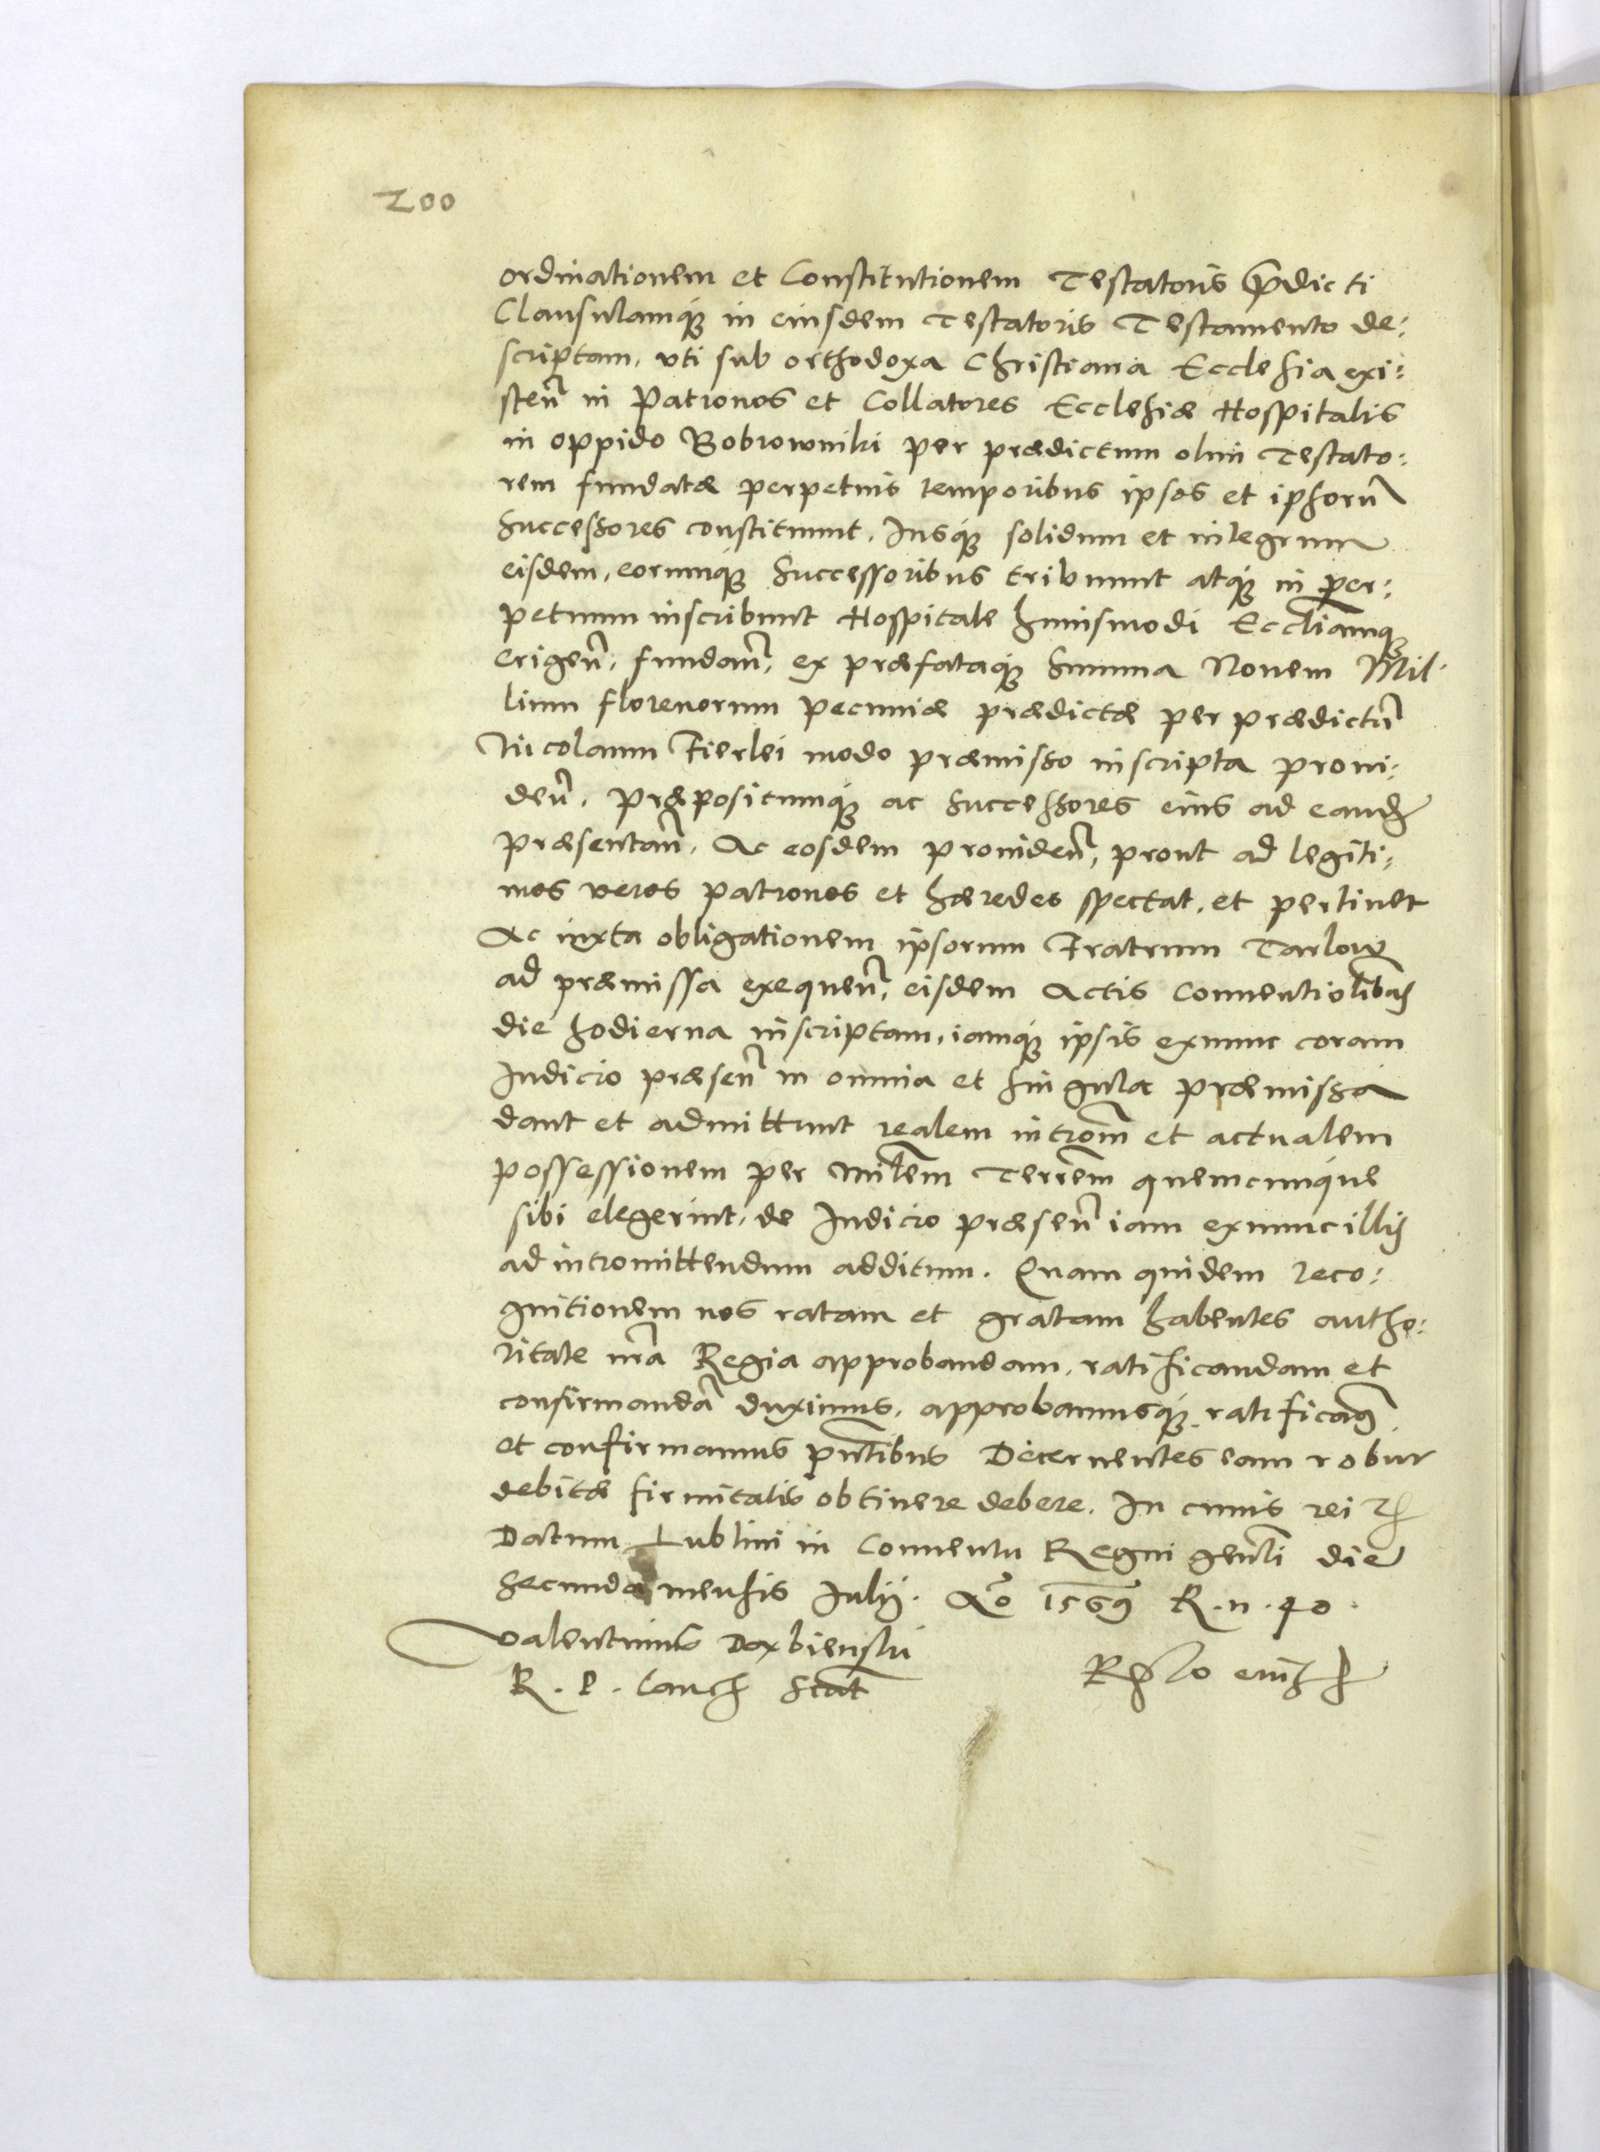 200
ordinationem et Constitutionem Testatoris p̃dicti
Clausulamq́ꝫ in eiusdem Testatoris Testamento de:
scriptam, uti sub orthodoxa Christiana Ecclesia exi:
steñ in Patronos et Collatores Ecclesiæ Hospitalis
in oppido Bobrowniki per prædictum olim Testato:
rem fundatæ perpetuis temporibus ipsos et ipsorũ
successores constituunt, Iusq́ꝫ solidum et integrum
eisdem, eorumq́ꝫ successoribus tribuunt atq́ꝫ in per:
petuum inscribunt Hospitale huiusmodi Eccl̃iamqꝫ
erigeñ, fundañ, ex præfataq́ꝫ summa Novem Mil:
lium florenorum pecuniæ prædictæ per prædictũ
Nicolaum Fierlei modo præmisso inscripta provi:
deñ, Præpositumq́ꝫ ac successores eius ad eand̃
præsentañ, Ac eosdem provideñ, prout ad legiti:
mos veros patronos et hæredes spectat, et pertinet
Ac iuxta obligationem ipsorum Fratrum Tarlow
ad præmissa exequeñ, eisdem Actis Conventiol̃ibus
die hodierna inscriptam, iamq́ꝫ ipsis exnunc coram
Iudicio præseñ in omnia et singula præmissa
dant et admittunt realem introm̃ et actualem
possessionem per Milẽm Terrẽm quemcunq́ue
sibi elegerint, de Iudicio præseñ iam exnunc illis
ad intromittendum additum. Quam quidem reco:
gnitionem nos ratam et gratam habentes autho:
ritate nr̃a Regia approbandam, ratificandam et
confirmandã duximus, approbamusq́ꝫ ratificam̃
et confirmamus pñtibus Decernentes eam robur
debitæ firmitatis obtinere debere. In cuius rei ꝛc
Datum Lublini in Conventu Regni geñli die
secunda mensis Iulij. Aõ 1569 R. n. 40.
Valentinus Dąxbienski
R. P. Canc̃ scat̃